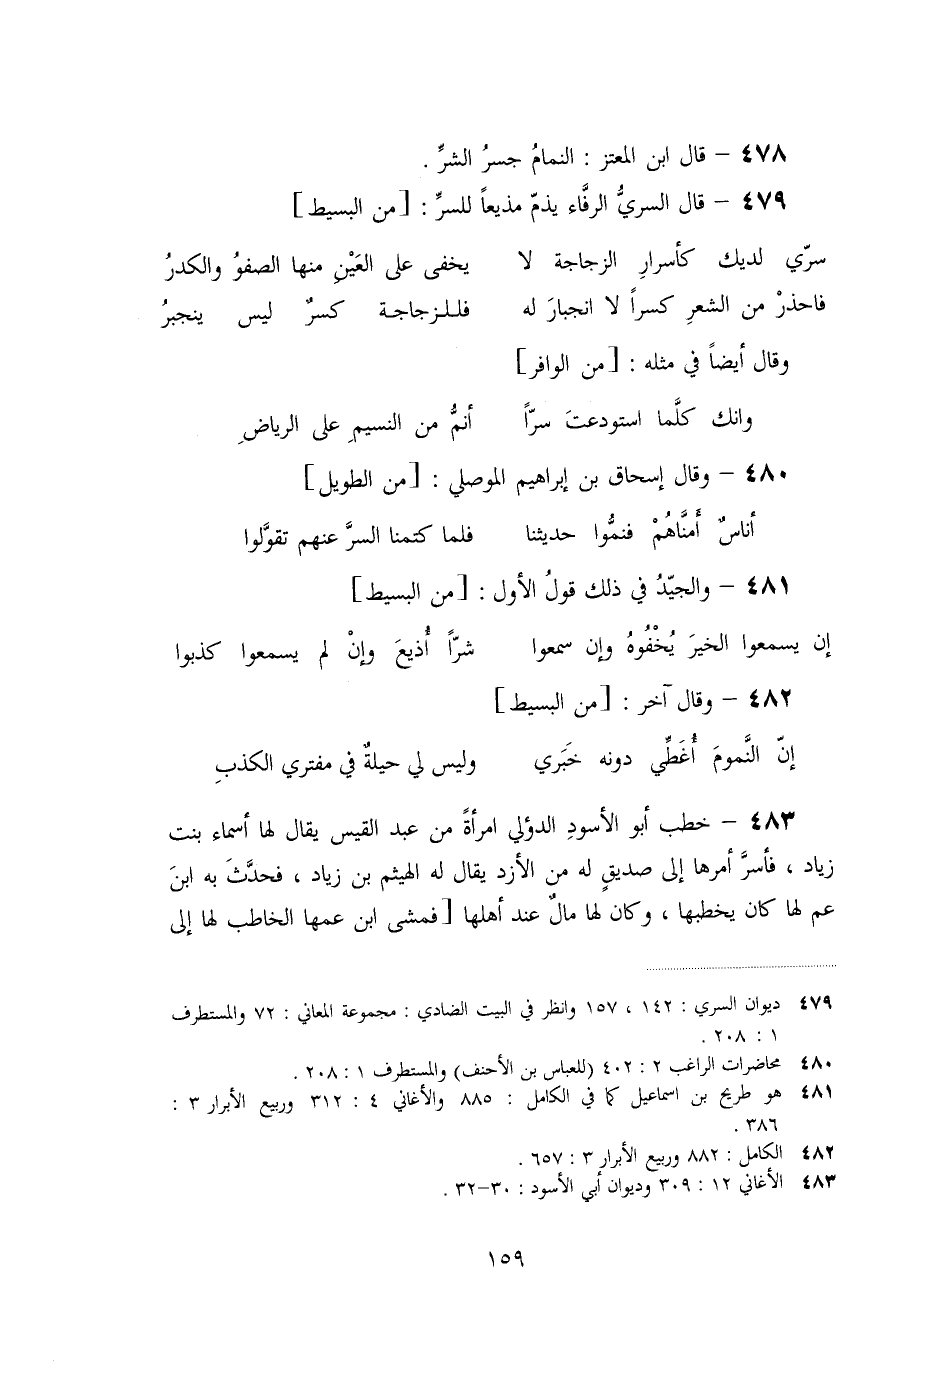 ٤٧٨ – قال ابن المعتز : النمامُ جسرُ الشرِّ .
٤٧٩ – قال السريُّ الرفَّاء يذمّ مذيعاً للسرِّ : [من البسيط]
سرّي لديك كأسرارِ الزجاجة لا يخفى على العَيْنِ منها الصفوُ والكدرُ
فاحذرْ من الشعرِ كسراً لا انجبارَ له فللزجاجة كسرٌ ليس ينجبرُ
وقال أيضاً في مثله : [من الوافر]
وانك كلَّما استودعتَ سرّاً أنمُّ من النسيمِ على الرياضِ
٤٨٠ – وقال إسحاق بن إبراهيم الموصلي : [من الطويل]
أناسٌ أَمنَّاهُمْ فنمُّوا حديثنا فلما كتمنا السرَّ عنهم تقوَّلوا
٤٨١ – والجيّدُ في ذلك قولُ الأول : [من البسيط]
إن يسمعوا الخيرَ يُخْفُوهُ وإن سمعوا شرّاً أُذيعَ وإنْ لم يسمعوا كذبوا
٤٨٢ – وقال آخر : [من البسيط]
إنّ النَّمومَ أُغَطِّي دونه خَبَري وليس لي حيلةٌ في مفتري الكذبِ
٤٨٣ – خطب أبو الأسودِ الدؤلي امرأةً من عبد القيس يقال لها أسماء بنت
زياد ، فأسرَّ أمرها إلى صديقٍ له من الأزد يقال له الهيثم بن زياد ، فحدَّثَ به ابنَ
عم لها كان يخطبها ، وكان لها مالٌ عند أهلها [فمشى ابن عمها الخاطب لها إلى
٤٧٩ ديوان السري : ١٤٢ ، ١٥٧ وانظر في البيت الضادي : مجموعة المعاني : ٧٢ والمستطرف
١ : ٢٠٨ .
٤٨٠ محاضرات الراغب ٢ : ٤٠٢ (للعباس بن الأحنف) والمستطرف ١ : ٢٠٨ .
٤٨١ هو طريح بن اسماعيل كما في الكامل : ٨٨٥ والأغاني ٤ : ٣١٢ وربيع الأبرار ٣ :
٣٨٦ .
٤٨٢ الكامل : ٨٨٢ وربيع الأبرار ٣ : ٦٥٧ .
٤٨٣ الأغاني ١٢ : ٣٠٩ وديوان أبي الأسود : ٣٠–٣٢ .
١٥٩